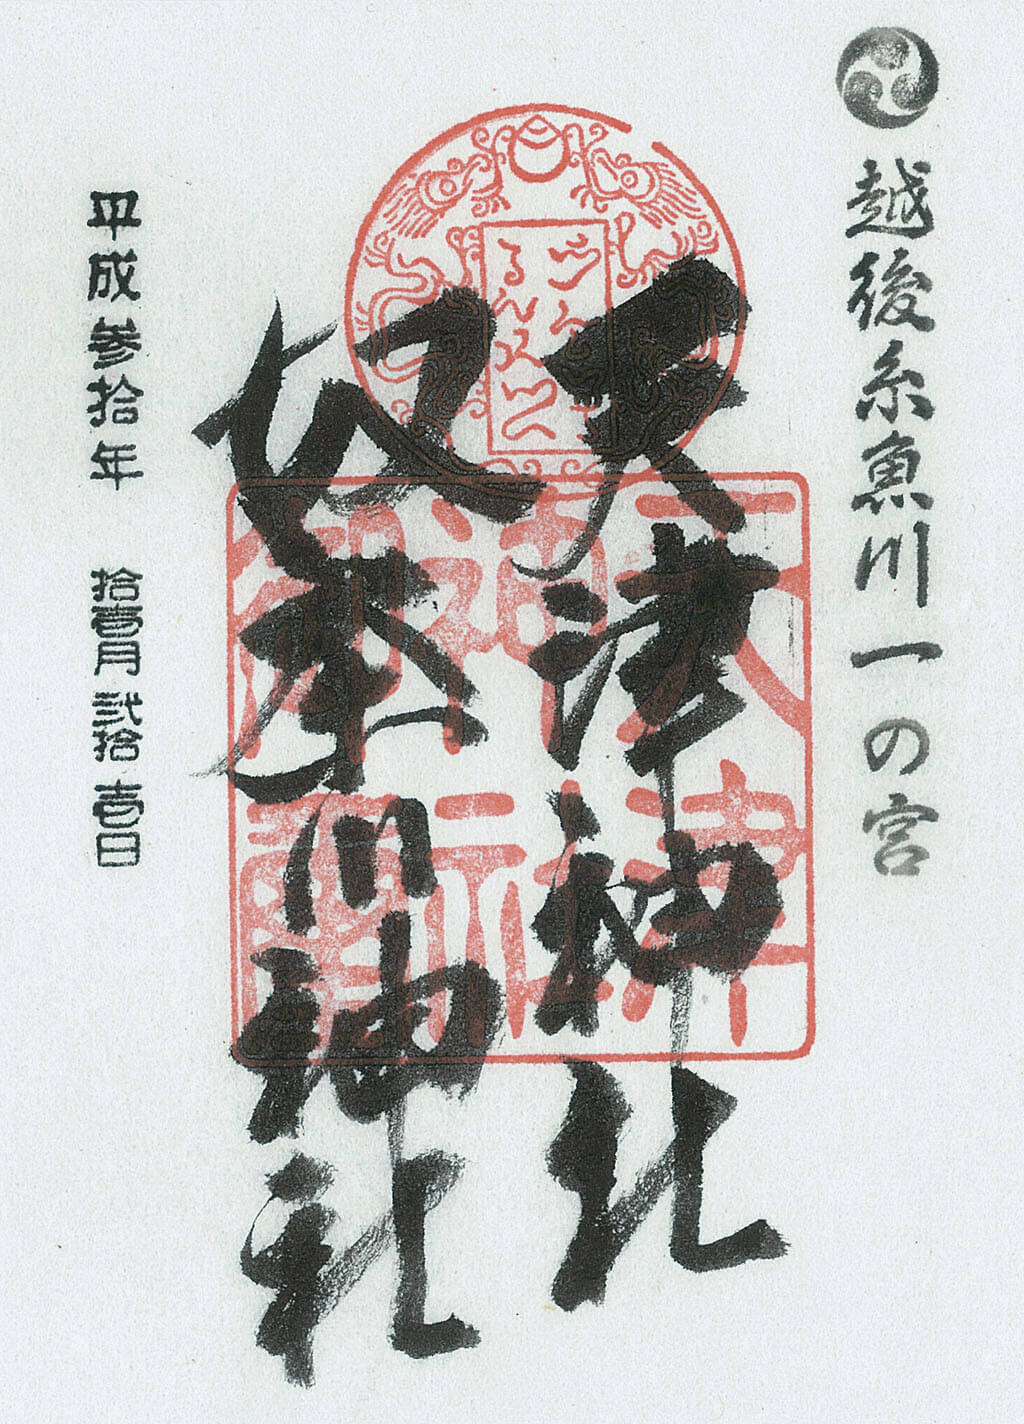 越後糸魚川一の宮
天津神社
奴奈川神社
平成参拾年 拾壹月弐拾壹日